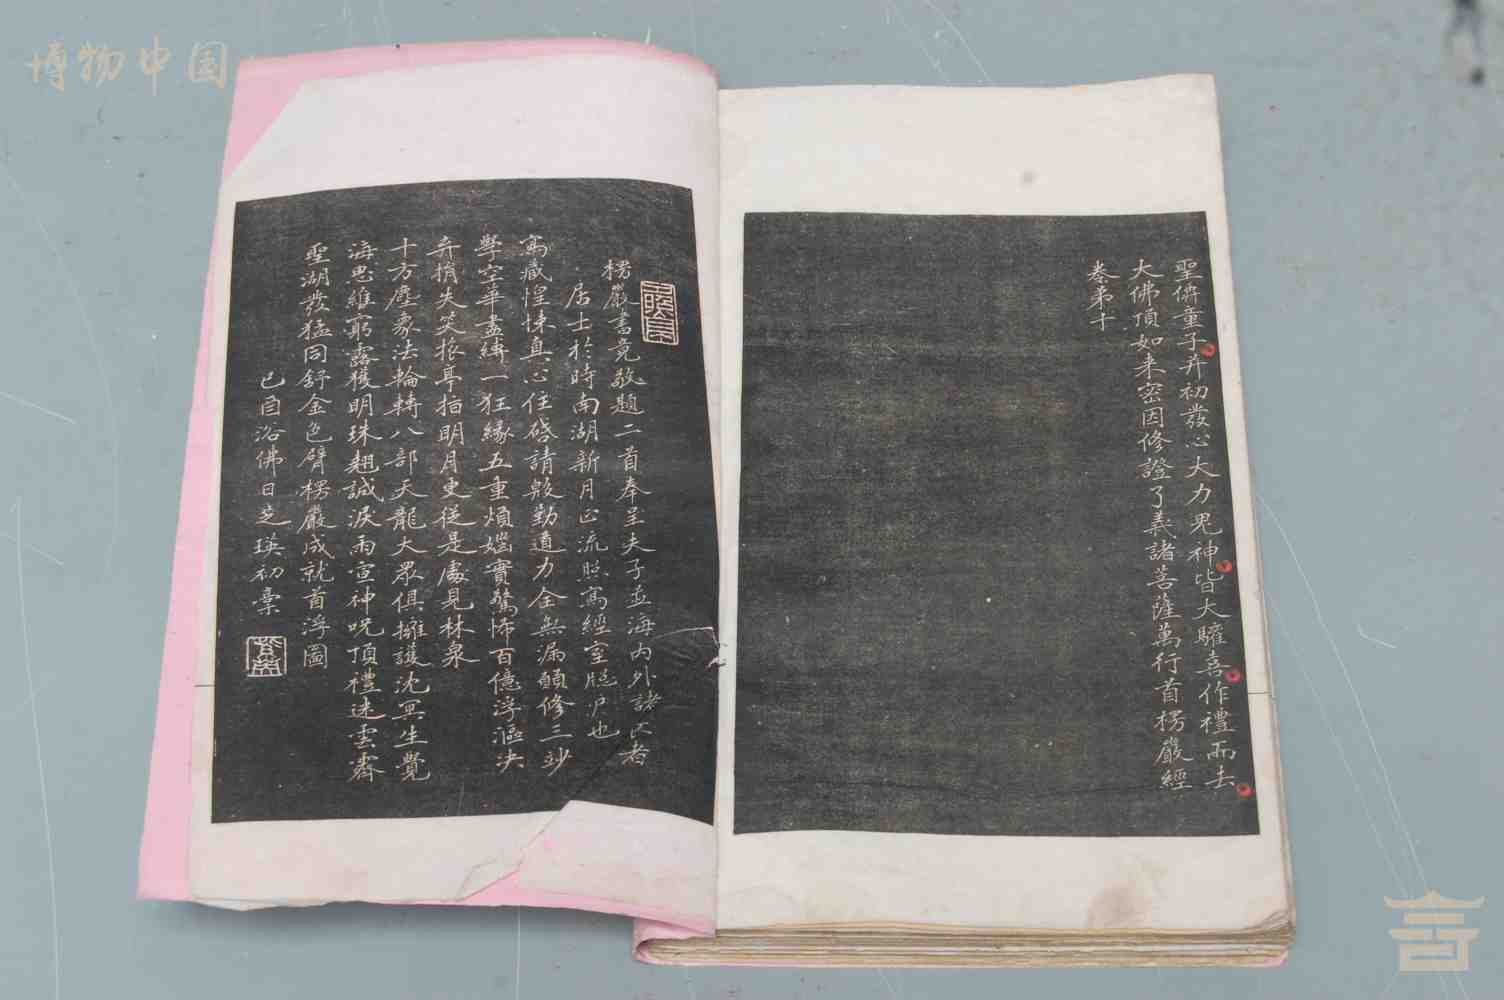 博物中国
聖僊童子并初發心大力鬼神皆大驩喜作禮而去
大佛頂如来密因修證了義諸菩薩萬行首楞嚴經
卷弟十
楞嚴書竟敬題二首奉呈夫子並海内外諸氏者
居士於時南湖新月正流照寫經室牕户也
寫藏惶悚真心住啓請殷勤道力全無漏願修三妙
學空華盡縛一狂緣五重煩惱實驚怖百億浮漚決
弃捐失笑旅亭指明月史從是處見林泉
十方塵象法輪轉八部天龍大眾俱擁護沈冥生覺
海思維窮露獲明珠翹誠淚雨宣神呪頂禮迷雲霽
聖湖發猛同舒金色臂楞嚴成就首浮圖
己酉浴佛日芝瑛初稾